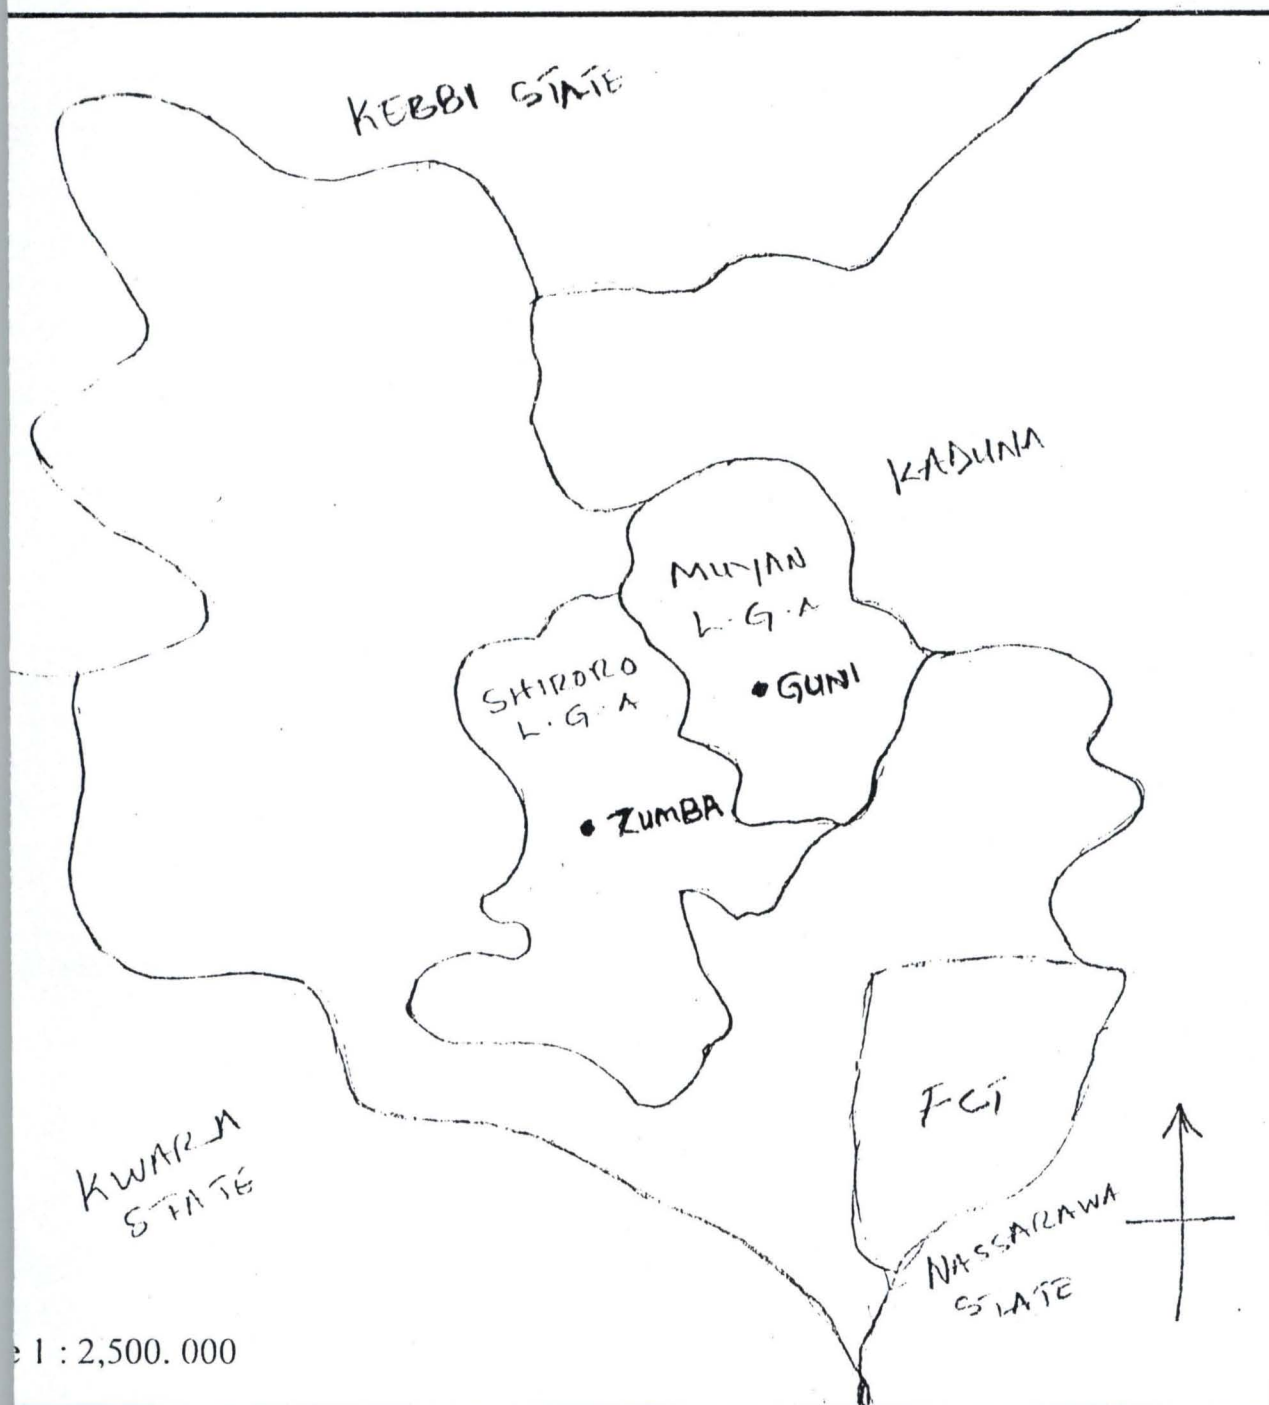 KEBBI STATE
KADUNA
MUYAN
L.G.A
SHIRORO
L.G.A
GUNI
ZUMBA
FCT
KWARA
STATE
NASSARAWA
STATE
e 1 : 2,500. 000